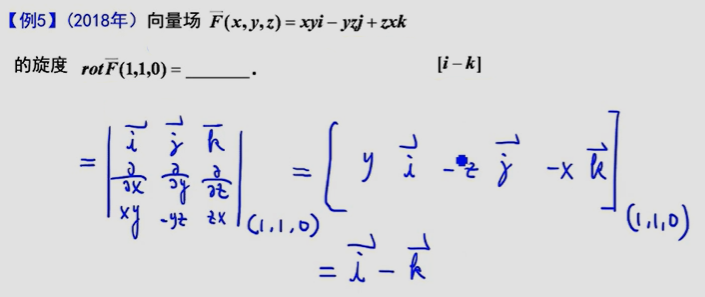 【例5】(2018年) 向量场 F̅(x,y,z)=xyi−yzj+zxk
的旋度 rotF̅(1,1,0)=______. [i−k]
= | i⃗ j⃗ k̅ ; ∂/∂x ∂/∂y ∂/∂z ; xy -yz zx |(1,1,0) = [ y i⃗ - z j⃗ -x k⃗ ](1,1,0)
= i⃗ - k⃗